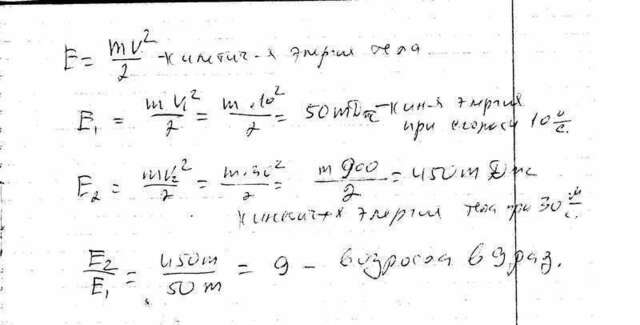 E = mv²/2 - кинетич-я энергия тела
E₁ = mV₁²/2 = m·10²/2 = 50mДж - кин-я энергия
при скорости 10 м/с.
E₂ = mV₂²/2 = m·30²/2 = m900/2 = 450m Дж
кинетич-я энергия тела при 30 м/с.
E₂/E₁ = 450m/50m = 9 - возросла в 9 раз.